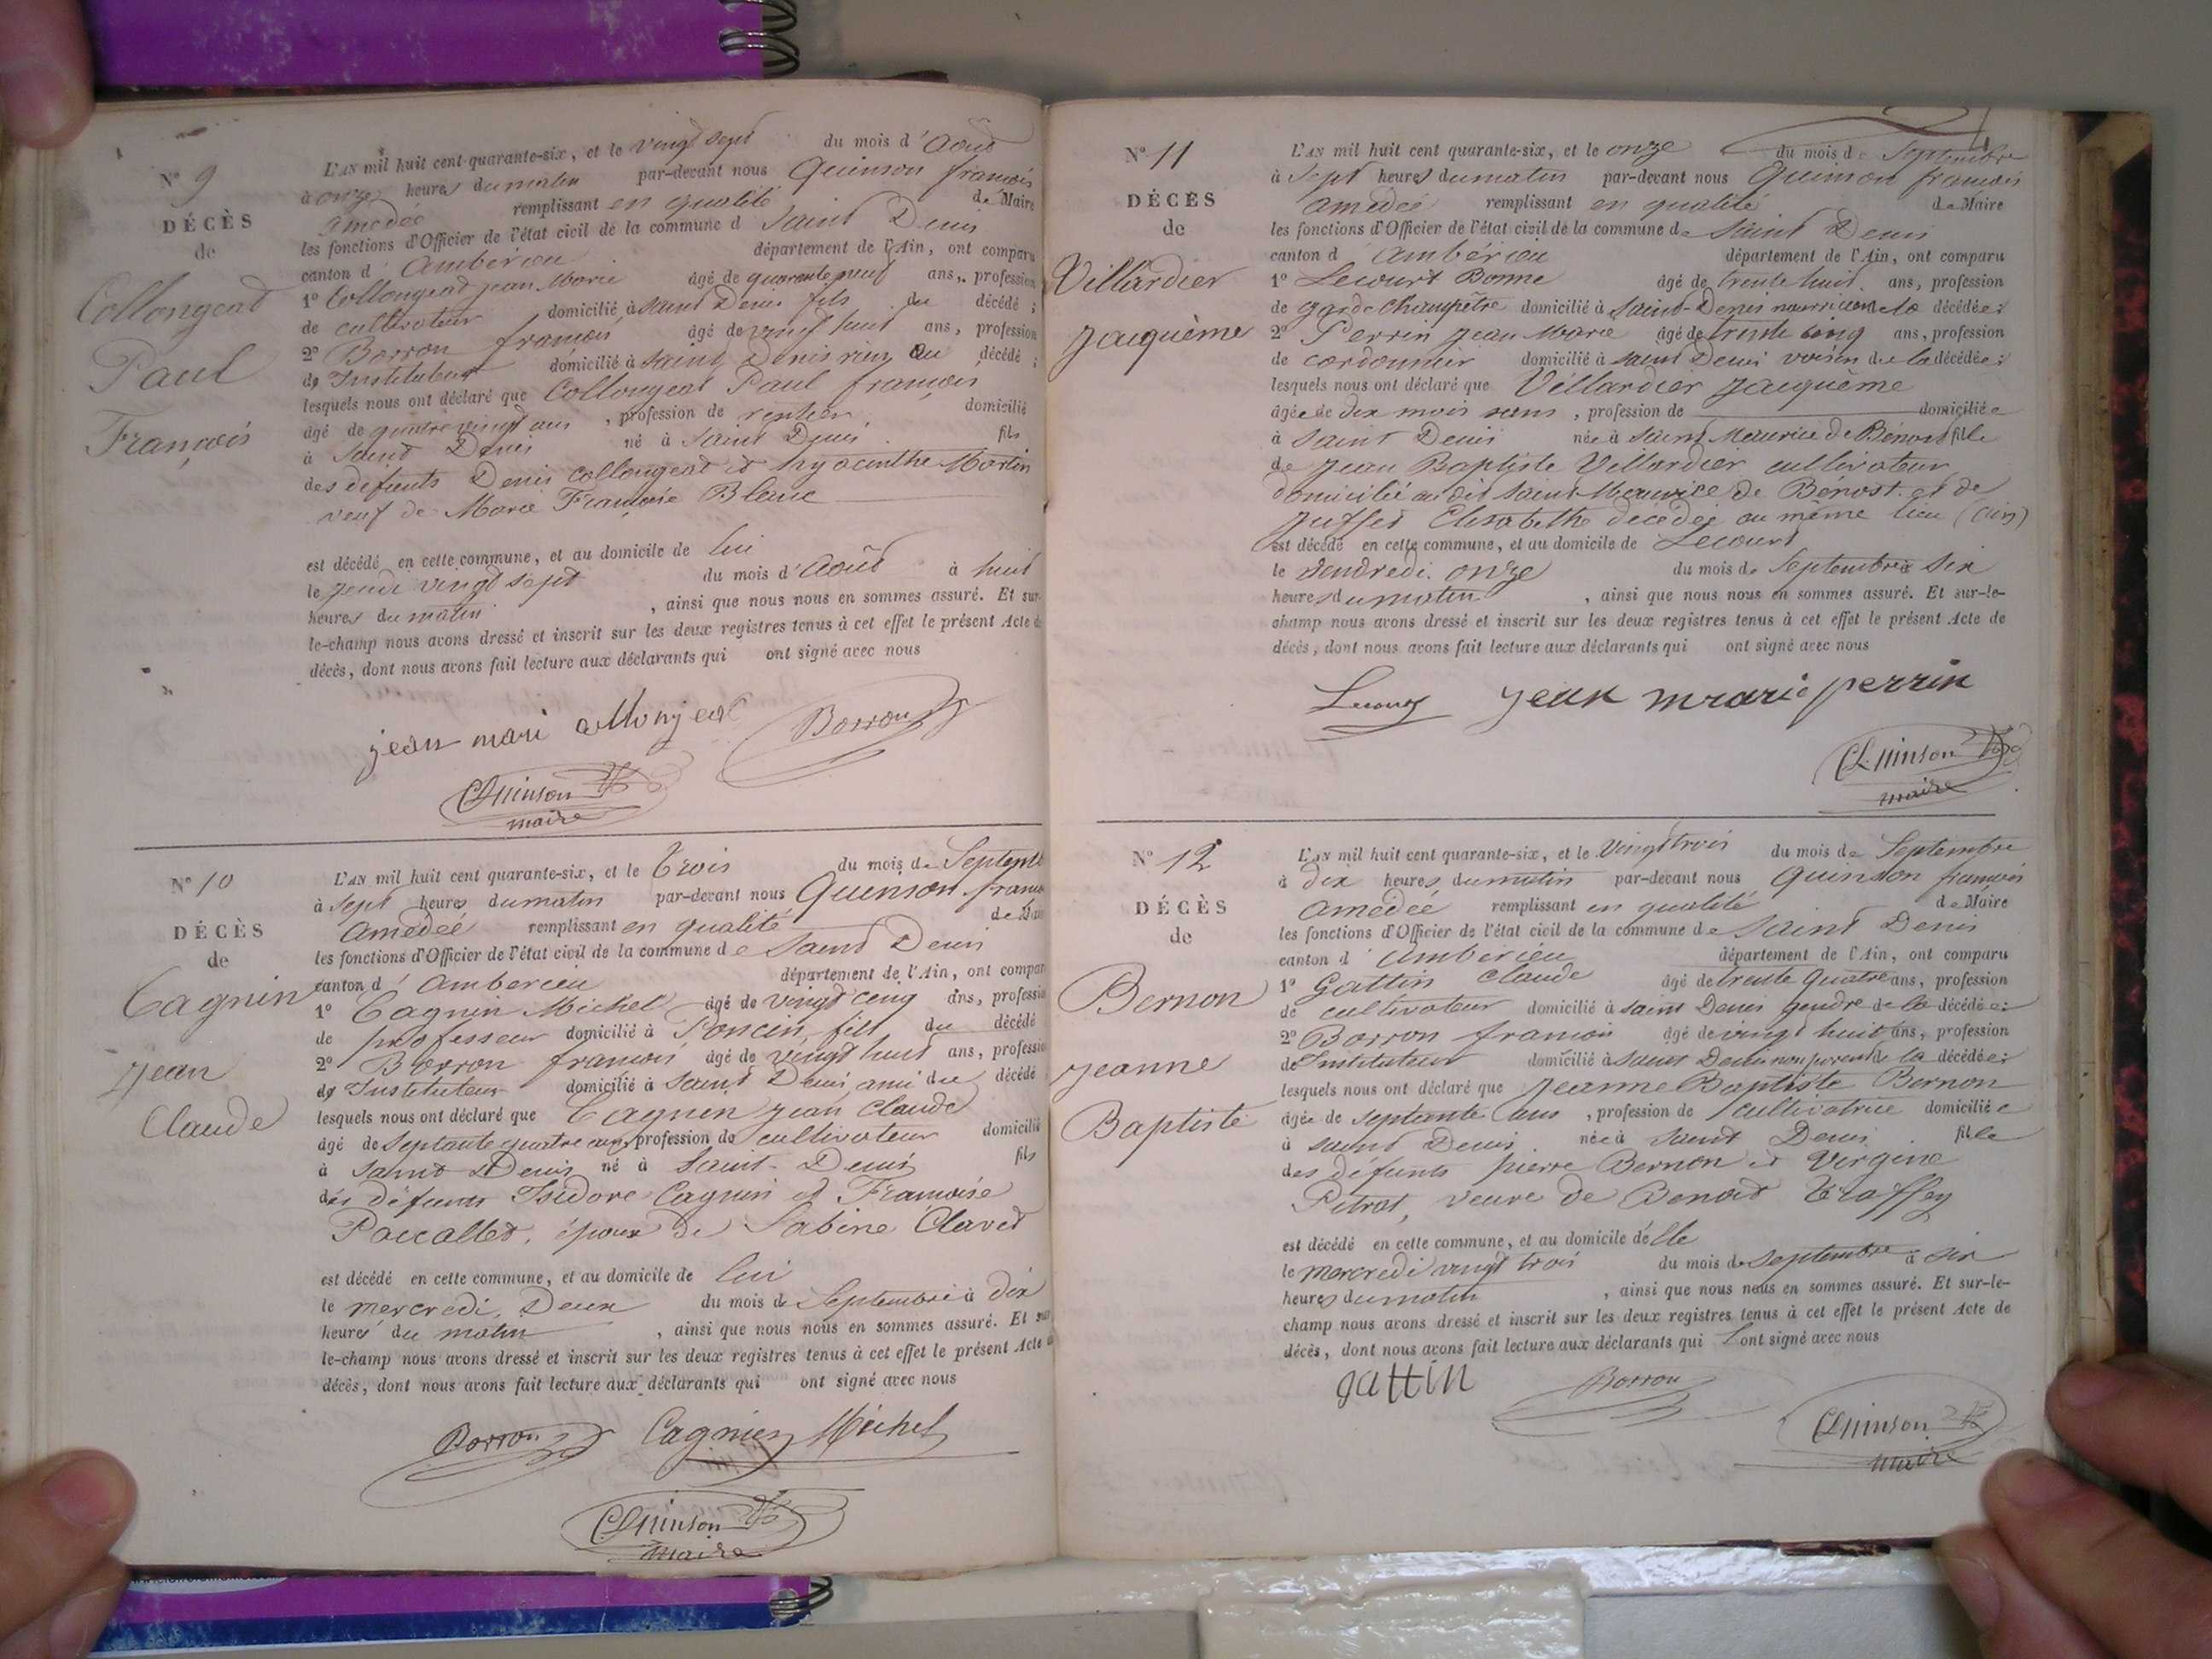 N° 9
DÉCÈS
de
Collongeat
Paul
François
L'AN mil huit cent quarante-six, et le vingt sept du mois d'Aout
à onze heures du matin par-devant nous Quinson françois
amédée remplissant en qualité de Maire
les fonctions d'Officier de l'état civil de la commune d Saint Denis
canton d' Ambérieu département de l'Ain, ont comparu
1° Collongeat jean Marie âgé de quarante neuf ans, profession
de cultivateur domicilié à saint Denis fils du décédé ;
2° Borron françois âgé de vingt huit ans, profession
de Instituteur domicilié à saint Denis rien au décédé ;
lesquels nous ont déclaré que Collongeat Paul françois
âgé de quatre vingt ans , profession de rentier domicilié
à Saint Denis né à Saint Denis fils
des défunts Denis Collongeat et hyacinthe Martin
veuf de Marie Françoise Blanc
est décédé en cette commune, et au domicile de lui
le jeudi vingt sept du mois d'Août à huit
heures du matin , ainsi que nous nous en sommes assuré. Et sur-
le-champ nous avons dressé et inscrit sur les deux registres tenus à cet effet le présent Acte de
décès, dont nous avons fait lecture aux déclarants qui ont signé avec nous
jean mari collonjeat Borron
Quinson
maire
N° 10
DÉCÈS
de
Cagnin
Jean
Claude
L'AN mil huit cent quarante-six, et le trois du mois de Septemb
à sept heures du matin par-devant nous Quinson franc
Amédéé remplissant en qualité de Mai
les fonctions d'Officier de l'état civil de la commune de Saint Denis
canton d' Amberieu département de l'Ain, ont compar
1° Cagnin Michel âgé de vingt cinq ans, professio
de professeur domicilié à Poncin, fils du décédé
2° Borron françois âgé de vingt huit ans, professio
de Instituteur domicilié à Saint Denis, ami du décédé
lesquels nous ont déclaré que Cagnin jean Claude
âgé de septante quatre ans, profession de cultivateur domicilié
à saint Denis né à Saint-Denis fils
des défunts Isidore Cagnin et Françoise
Paccallet, époux de Sabine Clavet
est décédé en cette commune, et au domicile de lui
le mercredi, Deux du mois de Septembre à dix
heures du matin , ainsi que nous nous en sommes assuré. Et sur
le-champ nous avons dressé et inscrit sur les deux registres tenus à cet effet le présent Acte d
décès, dont nous avons fait lecture aux déclarants qui ont signé avec nous
Borron Cagnin Michel
Quinson
maire
N° 11
DÉCÈS
de
Villardier
jacquème
L'AN mil huit cent quarante-six, et le onze du mois de Septembre
à Sept heures du matin par-devant nous Quinson françois
Amédéé remplissant en qualité de Maire
les fonctions d'Officier de l'état civil de la commune de Saint Denis
canton d' Ambérieu département de l'Ain, ont comparu
1° Lecourt Bonne âgé de trente huit ans, profession
de garde champêtre domicilié à Saint-Denis nourricier de la décédée ;
2° Perrin jean Marie âgé de trente cinq ans, profession
de cordonnier domicilié à saint Denis voisin de la décédée ;
lesquels nous ont déclaré que Villardier jacquème
âgée de dix mois , profession de domiciliée
à saint Denis née à saint Maurice de Bénost fille
de jean Baptiste Villardier cultivateur
domicilié au dit saint Maurice de Bénost et de
Elisabethe décédée au même lieu (ain)
est décédé en cette commune, et au domicile de Lecourt
le Vendredi onze du mois de Septembre à six
heures du matin , ainsi que nous nous en sommes assuré. Et sur-le-
champ nous avons dressé et inscrit sur les deux registres tenus à cet effet le présent Acte de
décès, dont nous avons fait lecture aux déclarants qui ont signé avec nous
Lecourt jean marie perrin
Quinson
maire
N° 12
DÉCÈS
de
Bernon
jeanne
Baptiste
L'AN mil huit cent quarante-six, et le Vingt trois du mois de Septembre
à dix heures du matin par-devant nous Quinson françois
Amédéé remplissant en qualité de Maire
les fonctions d'Officier de l'état civil de la commune de Saint Denis
canton d' Ambérieu département de l'Ain, ont comparu
1° Gattin Claude âgé de trente quatre ans, profession
de cultivateur domicilié à saint Denis gendre de la décédée ;
2° Borron françois âgé de vingt huit ans, profession
de Instituteur domicilié à saint Denis non parent de la décédée ;
lesquels nous ont déclaré que Jeanne Baptiste Bernon
âgée de septante ans , profession de cultivatrice domiciliée
à saint Denis née à saint Denis fille
des défunts pierre Bernon et Virgine
Pitrat, veuve de Benoit Traffey
est décédé en cette commune, et au domicile d'elle
le mercredi vingt trois du mois de septembre à six
heures du matin , ainsi que nous nous en sommes assuré. Et sur-le-
champ nous avons dressé et inscrit sur les deux registres tenus à cet effet le présent Acte de
décès, dont nous avons fait lecture aux déclarants qui ont signé avec nous
gattin Borron
Quinson
maire